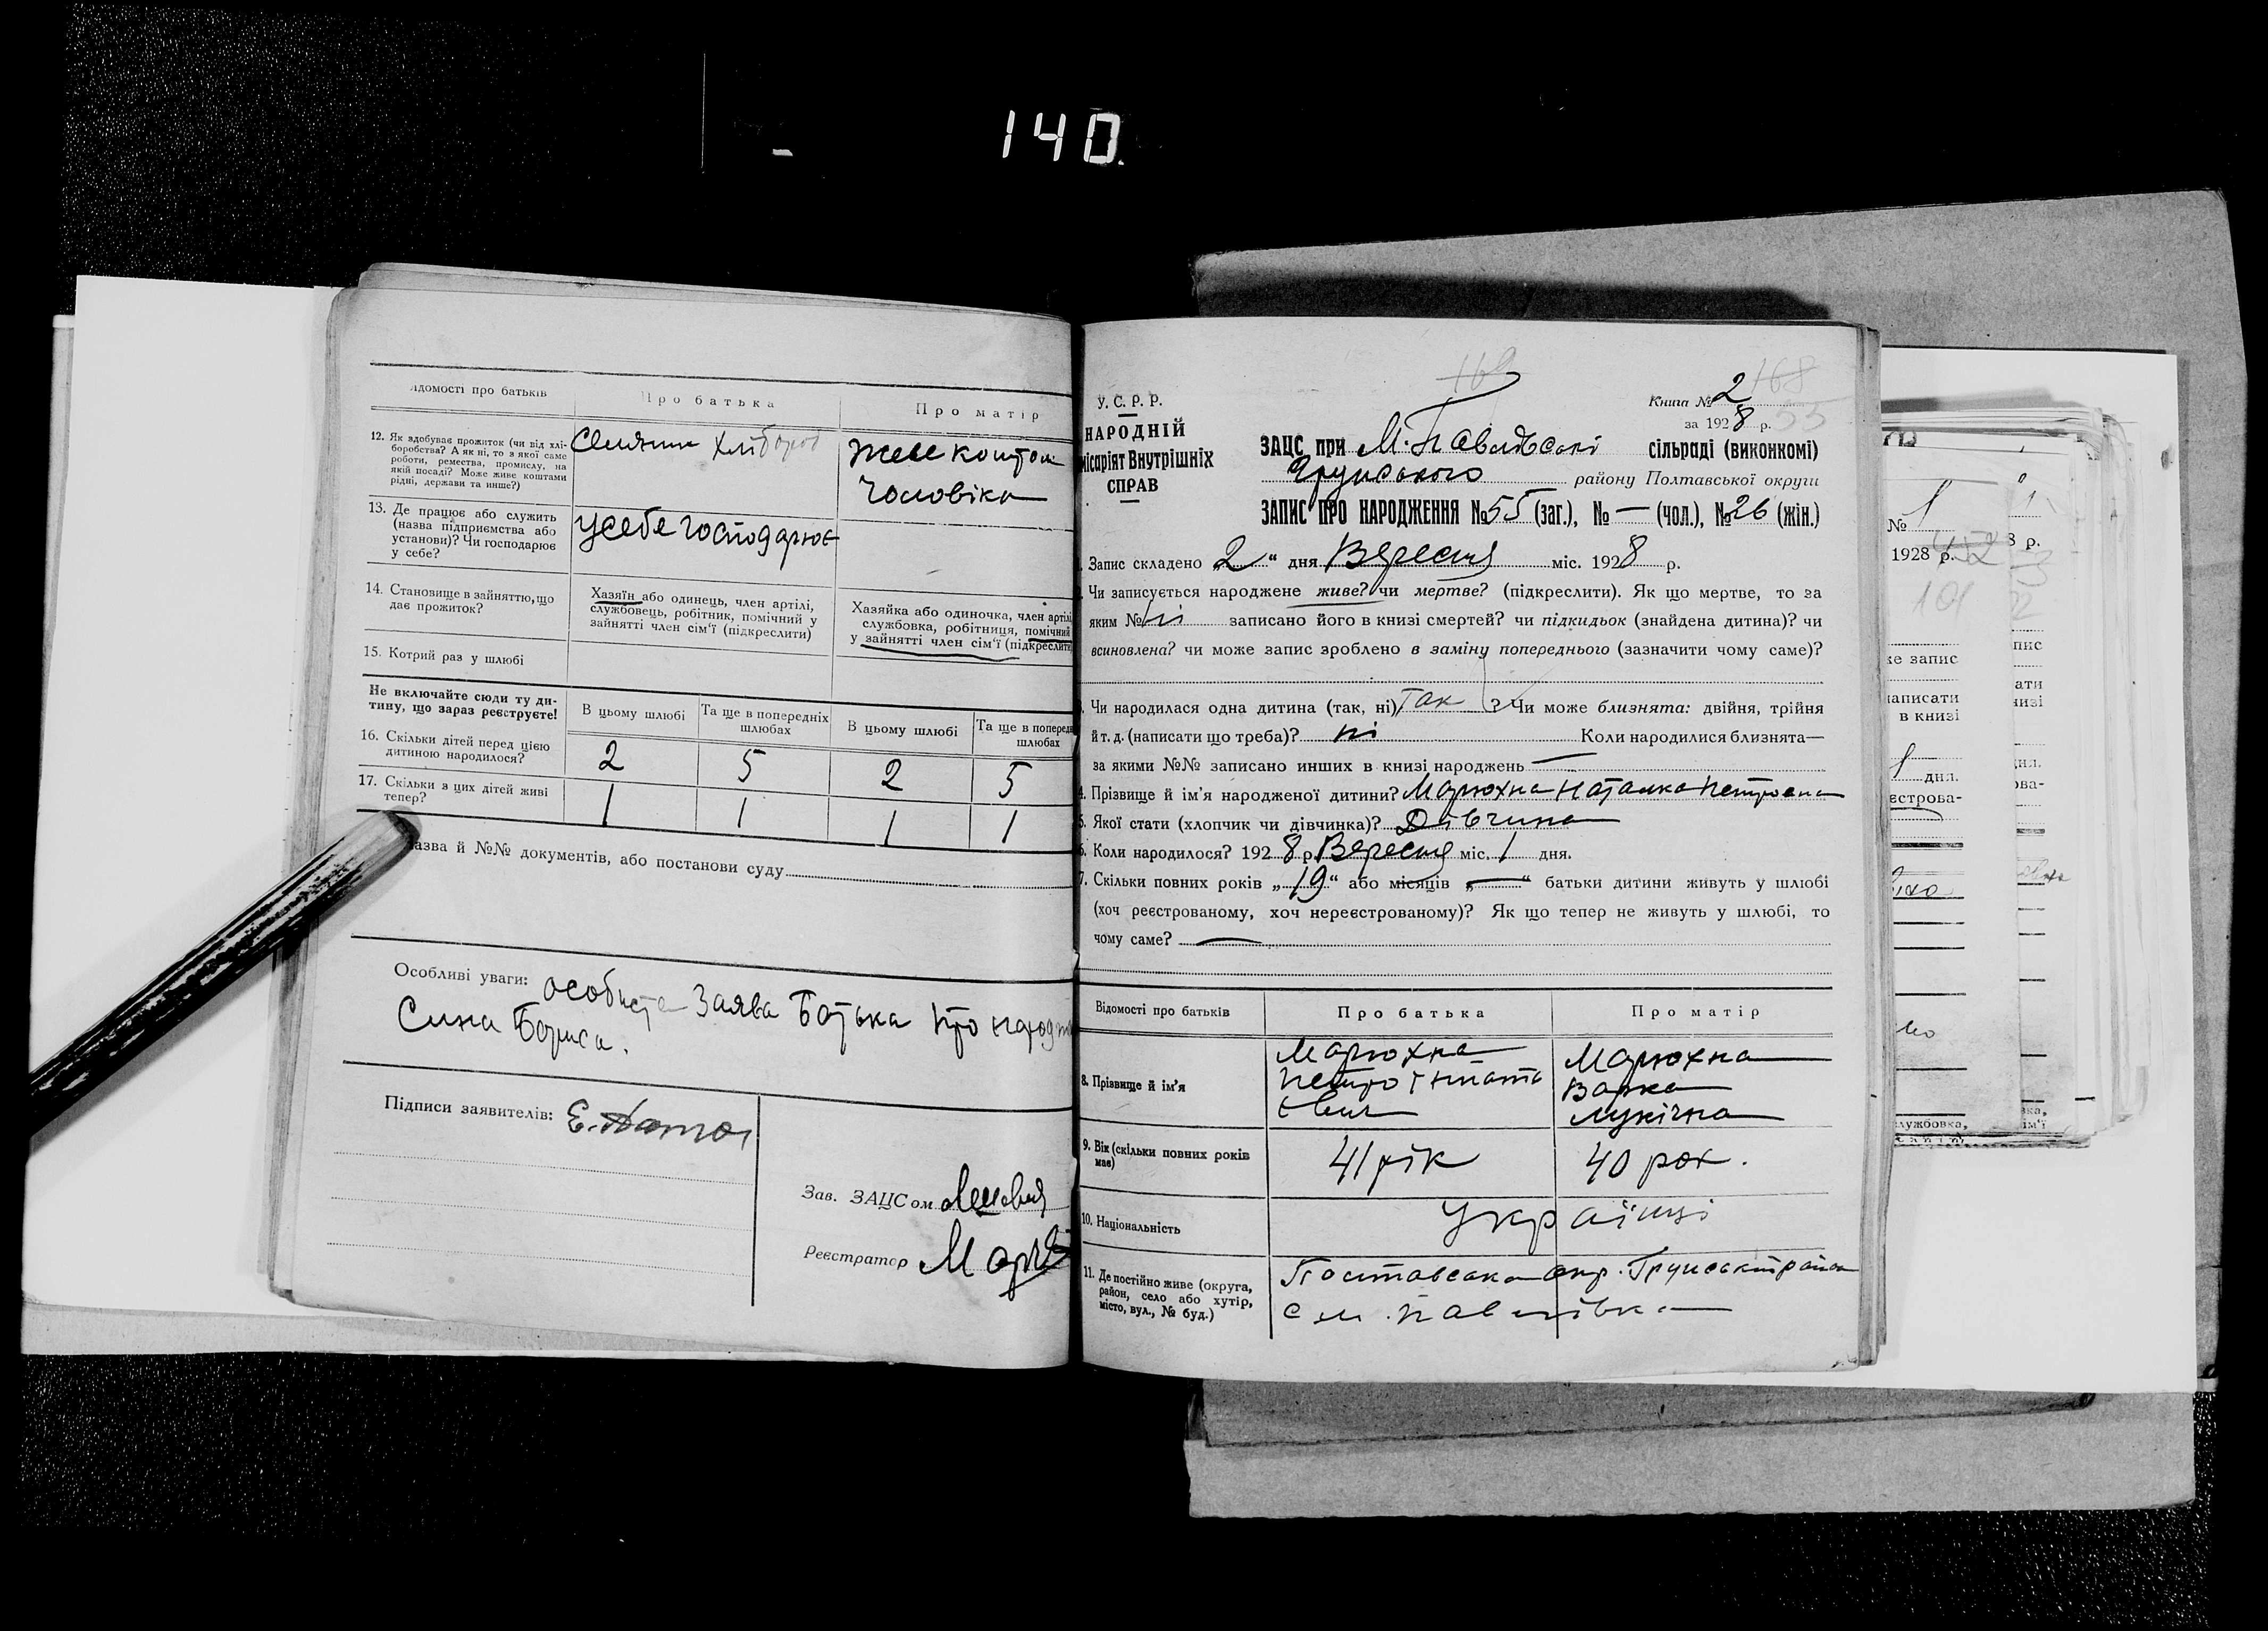 140.
Відомості про батьків
Про батька
Про матір
12. Як здобуває прожиток (чи від хлі-
боробства? А як ні, то з якої саме
роботи, ремества, промислу, на
якій посаді? Може живе коштами
рідні, держави та инше?)
Селянин хлібороб
живе коштом
Чоловіка
13. Де працює або служить
(назва підприємства або
установи)? Чи господарює
у себе?
Усебе господарює
14. Становище в зайняттю, що
дає прожиток?
Хазяїн або одинець, член артілі,
службовець, робітник, помічний у
зайнятті член сім'ї (підкреслити)
Хазяйка або одиночка, член артілі
службовка, робітниця, помічний
у зайнятті член сім'ї (підкреслити
15. Котрий раз у шлюбі
Не включайте сюди ту ди-
тину, що зараз реєструєте!
В цьому шлюбі
Та ще в попередніх
шлюбах
В цьому шлюбі
Та ще в поперед
шлюбах
16. Скільки дітей перед цією
дитиною народилося?
2 5 2 5
17. Скільки з цих дітей живі
тепер?
1 1 1 1
азва й №№ документів, або постанови суду
Особливі уваги: особиста Заява Батька про народж
Сина Бориса.
Підписи заявителів:
Зав. ЗАЦСом
Реєстратор
169
У.С.Р.Р.
НАРОДНІЙ
місаріят Внутрішніх
СПРАВ
Книга № 2 168
за 1928 р. 55
ЗАЦС при М. Павлівські сільраді (виконкомі)
Грунського району Полтавської округи
ЗАПИС ПРО НАРОДЖЕННЯ № 55 (заг.), № — (чол.), № 26 (жін.)
Запис складено „2“ дня Вересня міс. 1928 р.
Чи записується народжене живе? чи мертве? (підкреслити). Як що мертве, то за
яким № ні записано його в книзі смертей? чи підкидьок (знайдена дитина)? чи
всиновлена? чи може запис зроблено в заміну попереднього (зазначити чому саме)?
Чи народилася одна дитина (так, ні) Так ? Чи може близнята: двійня, трійня
й т. д. (написати що треба)? ні Коли народилися близнята—
за якими №№ записано инших в книзі народжень —
4. Прізвище й ім'я народженої дитини? Марюхна Наталка Петровна
5. Якої стати (хлопчик чи дівчинка)? Дівчина
6. Коли народилося? 1928 р. Вересня міс. 1 дня.
7. Скільки повних років „19“ або місяців „—“ батьки дитини живуть у шлюбі
(хоч реєстрованому, хоч нереєстрованому)? Як що тепер не живуть у шлюбі, то
чому саме? —
Відомості про батьків
Про батька
Про матір
8. Прізвище й ім'я
Марюхна
Петро Гната
євич
Марюхна
Варка
Лукічна
9. Вік (скільки повних років
має)
41 рік
40 рок.
10. Національність
Українці
11. Де постійно живе (округа,
район, село або хутір,
місто, вул., № буд.)
Полтавська окр. Грунський район
с м. Павлівка
№ 1
1928 р.
101
е запис
написати
в книзі
1 дня.
єстрова-
службовка,
8 р.
пис
ати
низі
дня.
ова-
вка,
ім'ї